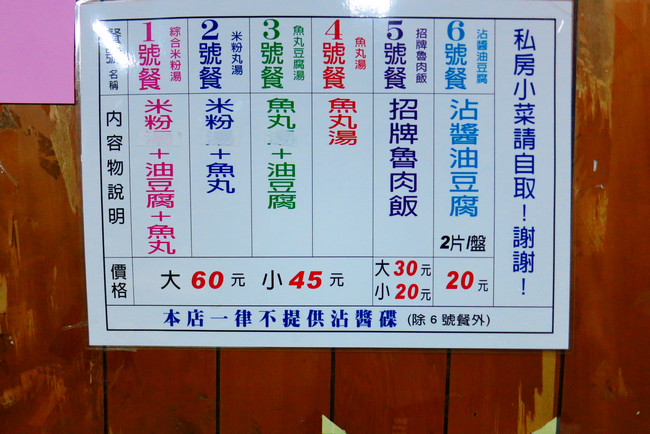 1號餐 綜合米粉湯
2號餐 米粉丸湯
3號餐 魚丸豆腐湯
4號餐 魚丸湯
5號餐 招牌魯肉飯
6號餐 沾醬油豆腐
名稱
內容物說明
米粉+油豆腐+魚丸
米粉+魚丸
魚丸+油豆腐
魚丸湯
招牌魯肉飯
沾醬油豆腐
2片/盤
價格
大 60 元 小 45 元
大 30 元
小 20 元
20 元
本店一律不提供沾醬碟 (除6號餐外)
私房小菜請自取！謝謝！